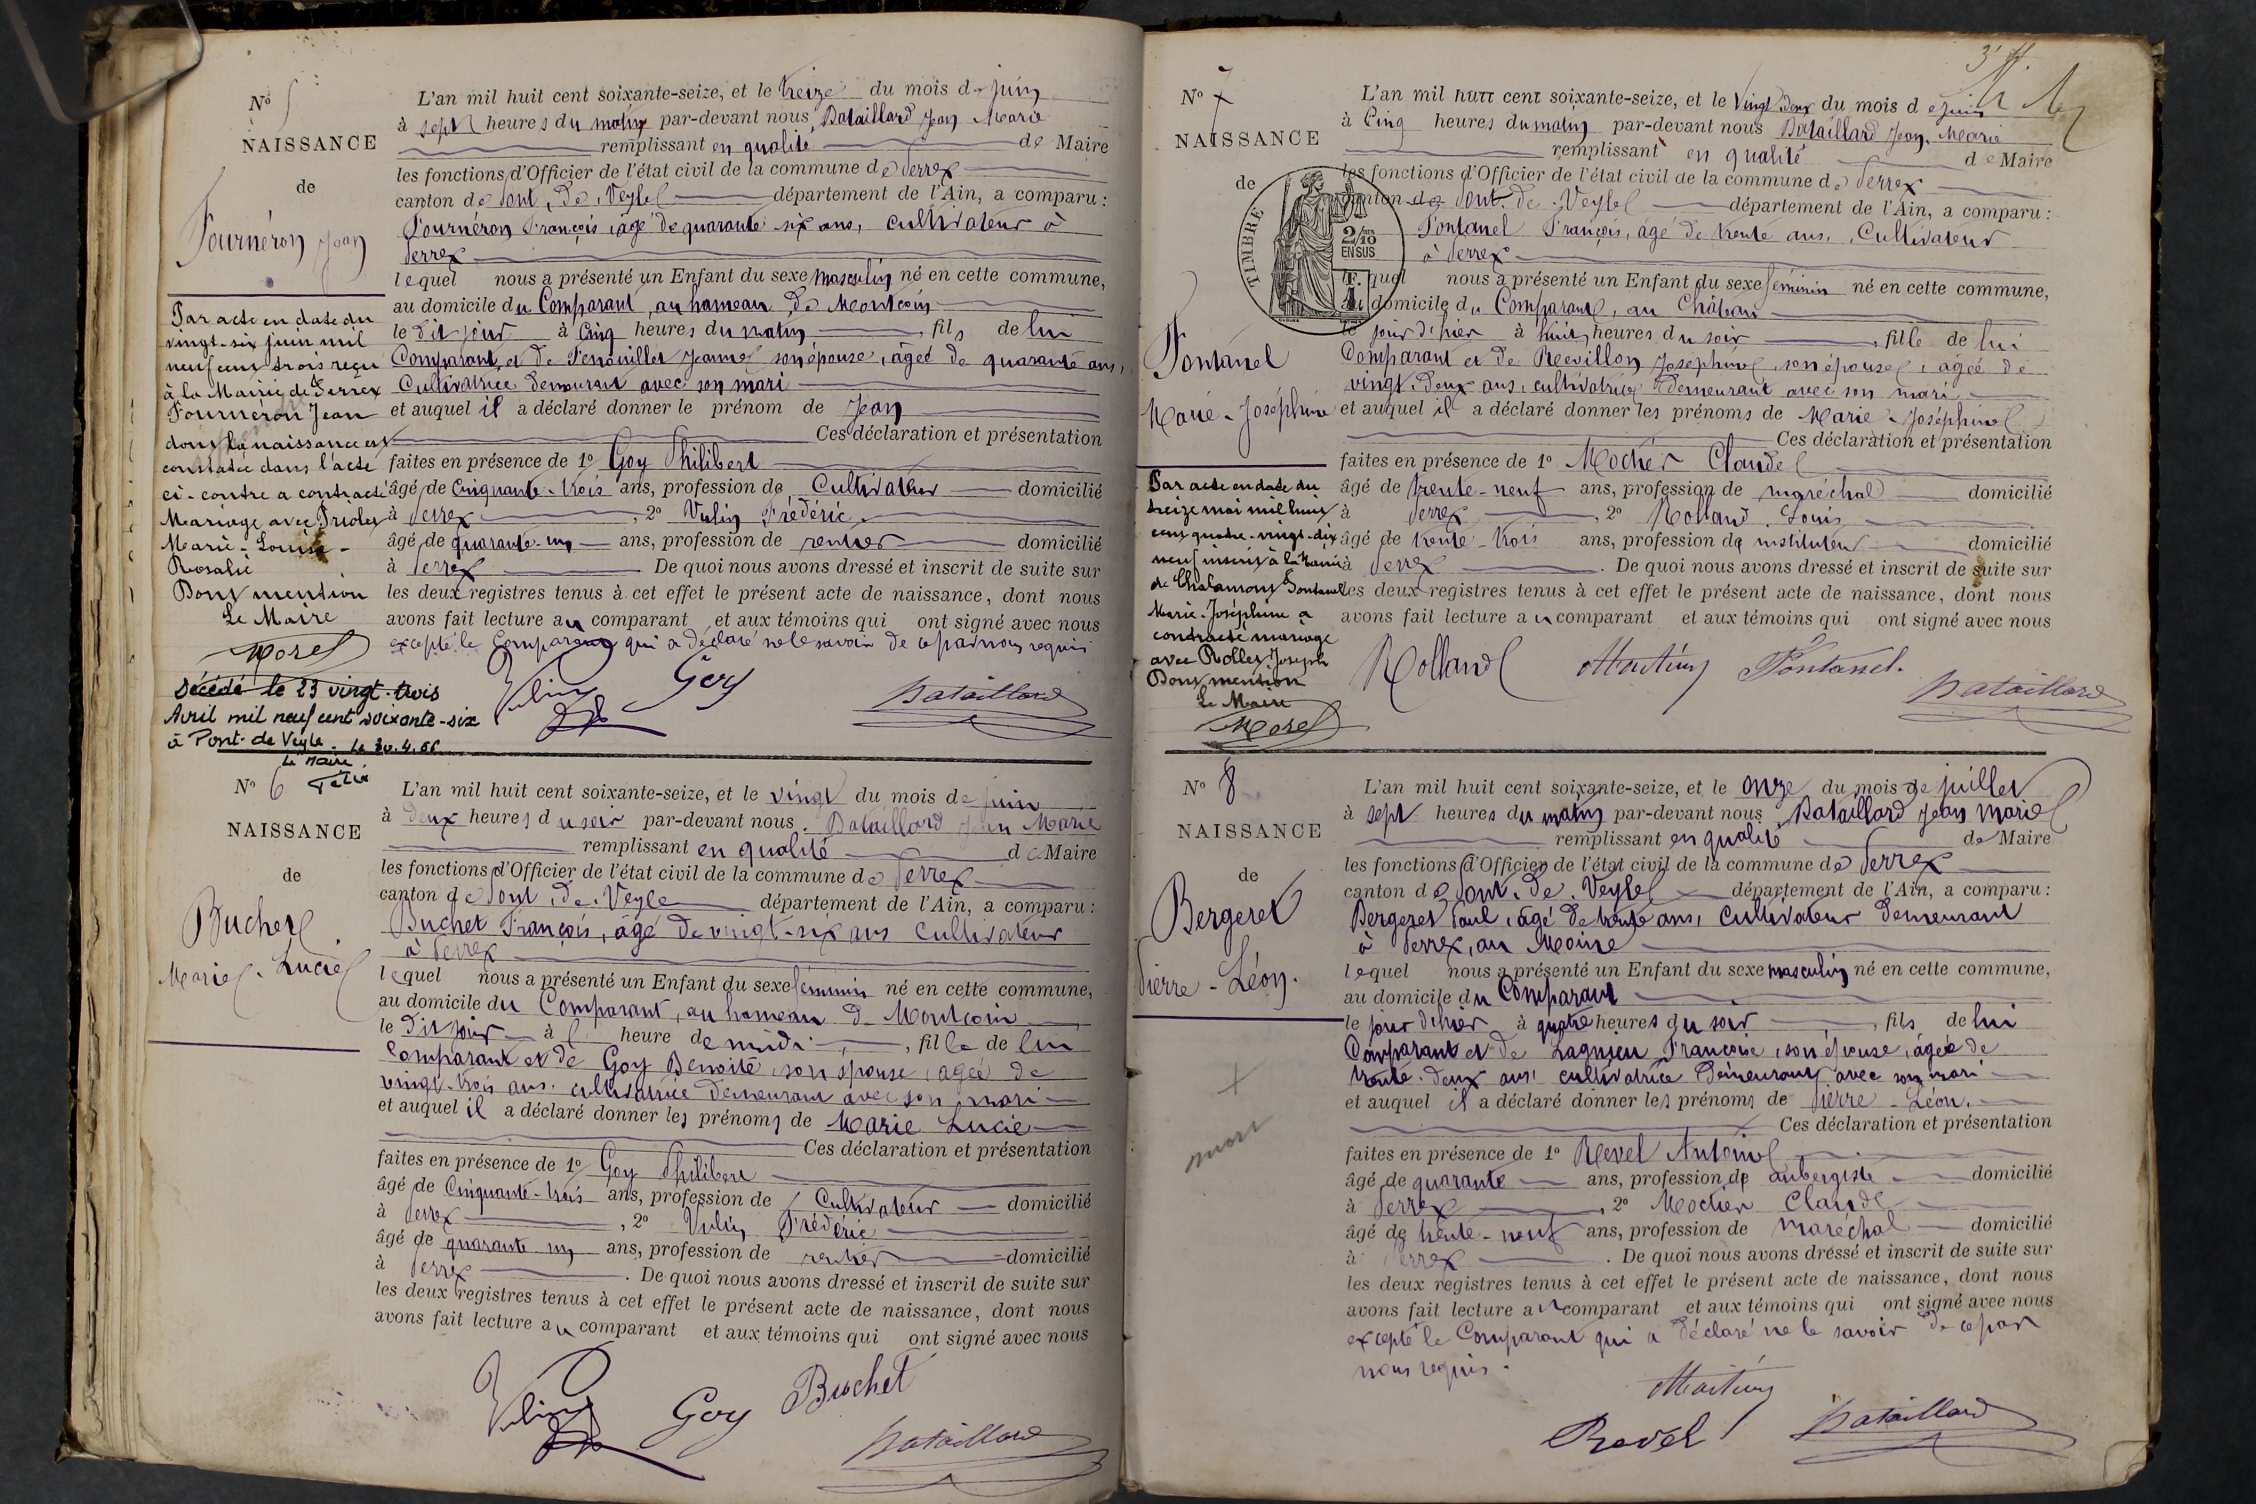 N° 5
NAISSANCE
de
Fournéron Jean
Par acte en date du
vingt-six juin mil
neuf cent trois reçu
à la Mairie de Perrex
Fournéron Jean
dont la naissance est
constatée dans l'acte
ci-contre a contracté
Mariage avec
Marie-Louise-
Rosalie
Dont mention
Le Maire
Morel
Décédé le 23 vingt-trois
Avril mil neuf cent soixante-six
à Pont-de Veyle. Le 30.4.66
Le Maire
L'an mil huit cent soixante-seize, et le treize du mois de juin
à sept heures du matin par-devant nous, Bataillard Jean Marie
remplissant en qualité de Maire
les fonctions d'Officier de l'état civil de la commune de Perrex
canton de Pont-de-Veyle département de l'Ain, a comparu :
Fournéron François, âgé de quarante six ans, cultivateur à
Perrex
lequel nous a présenté un Enfant du sexe masculin né en cette commune,
au domicile du Comparant, au hameau de Montcoin
le dit jour à cinq heures du matin, fils de lui
Comparant et de Fenouillet Jeanne son épouse, âgée de quarante ans,
Cultivatrice demeurant avec son mari
et auquel il a déclaré donner le prénom de Jean
Ces déclaration et présentation
faites en présence de 1° Goy Philibert
âgé de cinquante-trois ans, profession de Cultivateur domicilié
à Perrex, 2° Vulin Frédéric
âgé de quarante-un ans, profession de rentier domicilié
à Perrex. De quoi nous avons dressé et inscrit de suite sur
les deux registres tenus à cet effet le présent acte de naissance, dont nous
avons fait lecture au comparant et aux témoins qui ont signé avec nous
excepté le Comparant qui a déclaré ne le savoir de ce par nous requis
Vulin Goy Bataillard
N° 6
NAISSANCE
de
Buchet
Marie-Lucie
L'an mil huit cent soixante-seize, et le vingt du mois de juin
à deux heures du soir par-devant nous, Bataillard Jean Marie
remplissant en qualité de Maire
les fonctions d'Officier de l'état civil de la commune de Perrex
canton de Pont-de-Veyle département de l'Ain, a comparu :
Buchet François, âgé de vingt-six ans cultivateur
à Perrex
lequel nous a présenté un Enfant du sexe féminin né en cette commune,
au domicile du Comparant, au hameau de Montcoin
le dit jour à l heure de midi, fille de lui
Comparant et de Goy Benoite son épouse, âgée de
vingt-trois ans, cultivatrice demeurant avec son mari
et auquel il a déclaré donner les prénoms de Marie Lucie
Ces déclaration et présentation
faites en présence de 1° Goy Philibert
âgé de Cinquante-trois ans, profession de Cultivateur domicilié
à Perrex, 2° Vulin Frédéric
âgé de quarante un ans, profession de rentier domicilié
à Perrex. De quoi nous avons dressé et inscrit de suite sur
les deux registres tenus à cet effet le présent acte de naissance, dont nous
avons fait lecture au comparant et aux témoins qui ont signé avec nous
Vulin Goy Buchet
Bataillard
N° 7
NAISSANCE
de
TIMBRE
2/10
EN SUS
Fontanel
Marie-Joséphine
Par acte en date du
treize mai mil huit
cent quatre-vingt-dix
neuf inscrit à la Mairie
de Chalamont Fontanel
Marie-Joséphine a
contracté mariage
avec Rollet Joseph
Dont mention
Le Maire
Morel
L'an mil huit cent soixante-seize, et le vingt-deux du mois de juin
à Cinq heures du matin par-devant nous Bataillard Jean, Marie
remplissant en qualité de Maire
les fonctions d'Officier de l'état civil de la commune de Perrex
canton de Pont-de-Veyle département de l'Ain, a comparu :
Fontanel François, âgé de trente ans, Cultivateur
à Perrex
lequel nous a présenté un Enfant du sexe féminin né en cette commune,
au domicile du Comparant, au Château
le jour d'hier à huit heures du soir, fille de lui
Comparant et de Revillon Joséphine, son épouse, âgée de
vingt-deux ans, cultivatrice demeurant avec son mari
et auquel il a déclaré donner les prénoms de Marie-Joséphine
Ces déclaration et présentation
faites en présence de 1° Mochier Claude
âgé de trente-neuf ans, profession de maréchal domicilié
à Perrex, 2° Rolland Louis
âgé de trente-trois ans, profession de instituteur domicilié
à Perrex. De quoi nous avons dressé et inscrit de suite sur
les deux registres tenus à cet effet le présent acte de naissance, dont nous
avons fait lecture au comparant et aux témoins qui ont signé avec nous
Rolland Fontanel.
Bataillard
N° 8
NAISSANCE
de
Bergeret
Pierre-Léon.
mort
L'an mil huit cent soixante-seize, et le onze du mois de juillet
à sept heures du matin par-devant nous Bataillard Jean Marie
remplissant en qualité de Maire
les fonctions d'Officier de l'état civil de la commune de Perrex
canton de Pont-de-Veyle département de l'Ain, a comparu :
Bergeret Paul, âgé de trente ans, Cultivateur demeurant
à Perrex, au
lequel nous a présenté un Enfant du sexe masculin né en cette commune,
au domicile du Comparant
le jour d'hier à quatre heures du soir, fils de lui
Comparant et de Lagnieu Françoise, son épouse, âgée de
trente-deux ans, cultivatrice demeurant avec son mari
et auquel il a déclaré donner les prénoms de Pierre-Léon.
Ces déclaration et présentation
faites en présence de 1° Revel Antoine
âgé de quarante ans, profession de aubergiste domicilié
à Perrex, 2° Mochier Claude
âgé de trente-neuf ans, profession de maréchal domicilié
à Perrex. De quoi nous avons dressé et inscrit de suite sur
les deux registres tenus à cet effet le présent acte de naissance, dont nous
avons fait lecture au comparant et aux témoins qui ont signé avec nous
excepté le Comparant qui a déclaré ne le savoir de ce par
nous requis.
Revel Bataillard